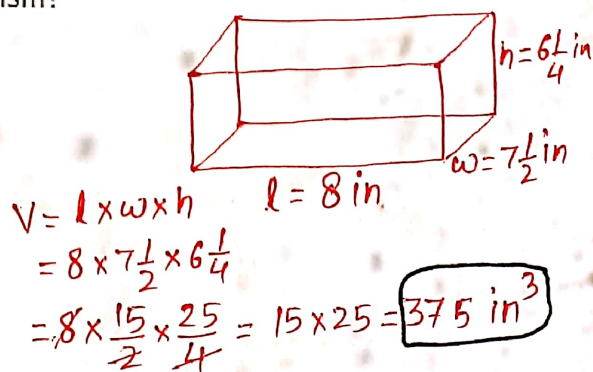 h = 6 1/4 in
w = 7 1/2 in
l = 8 in.
V = l × w × h
= 8 × 7 1/2 × 6 1/4
= 8 × 15/2 × 25/4 = 15 × 25 = 375 in³